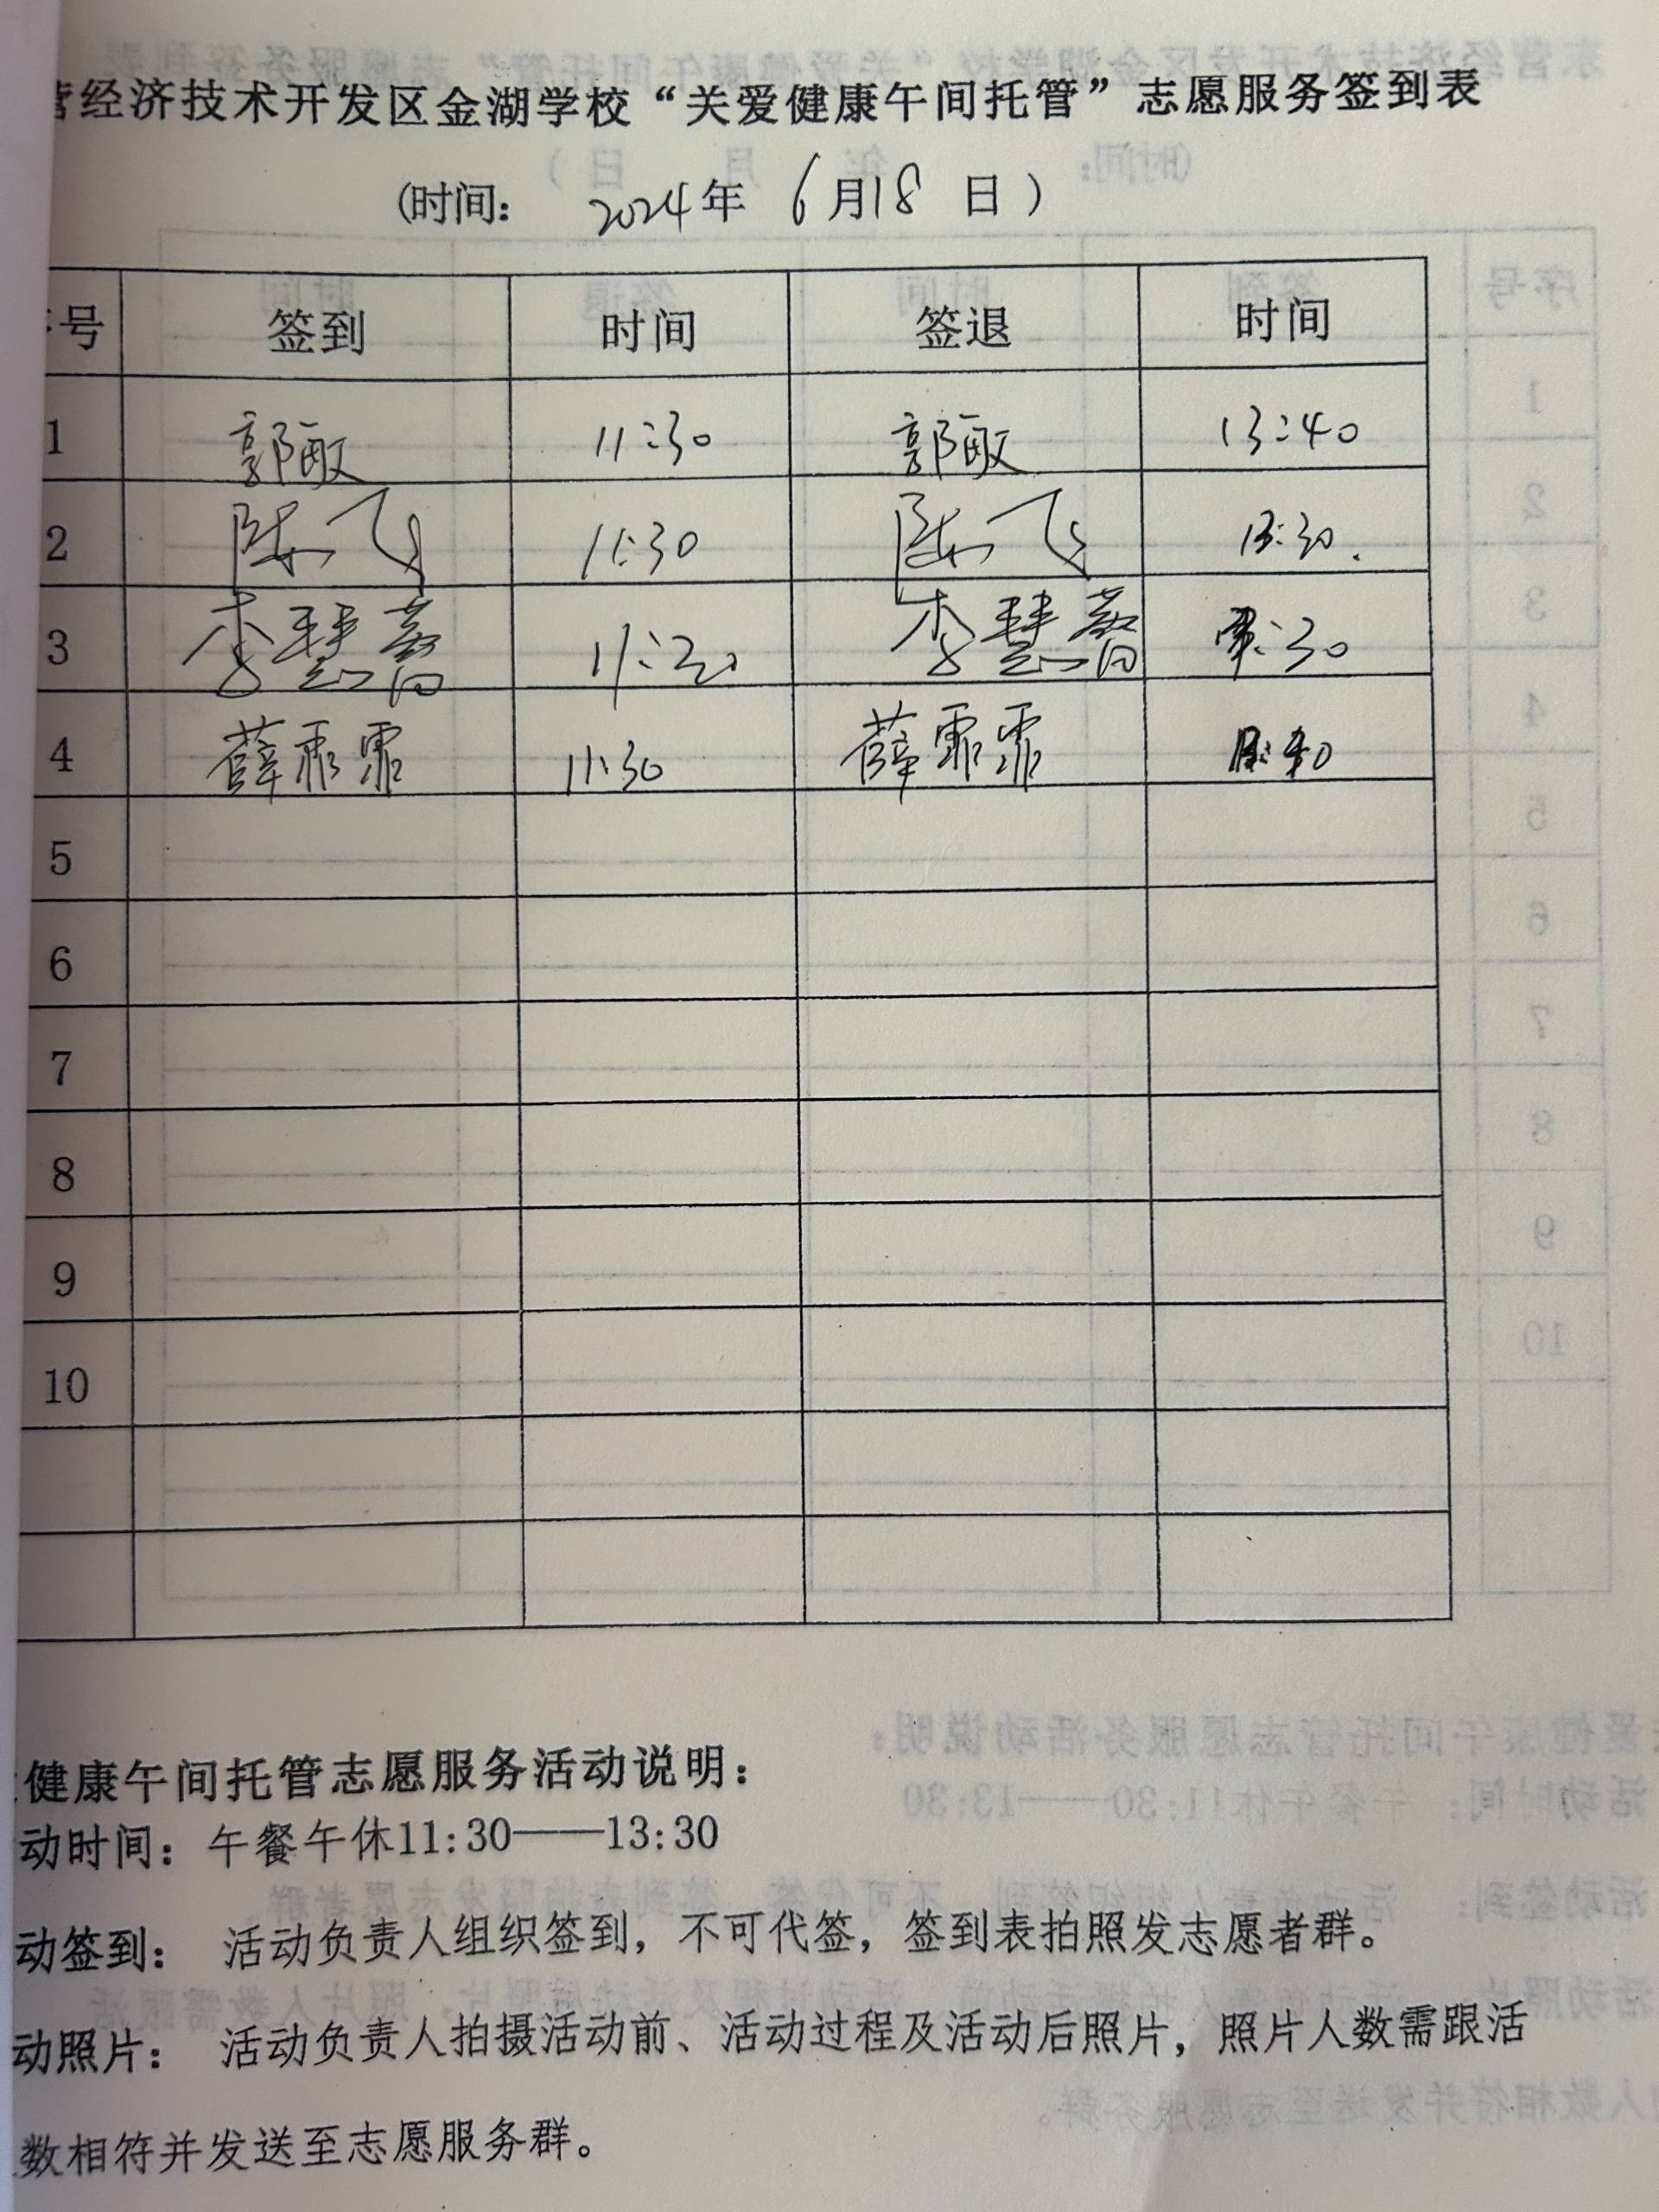 营经济技术开发区金湖学校“关爱健康午间托管”志愿服务签到表
(时间: 2024年 6月18 日)
序号 签到 时间 签退 时间
1 郭敏 11:30 郭敏 13:40
2 陈飞 11:30 陈飞 13:30.
3 李慧 11:30 李慧 :30
4 薛霏霏 11:30 薛霏霏 13:40
5
6
7
8
9
10
健康午间托管志愿服务活动说明:
动时间: 午餐午休11:30——13:30
动签到: 活动负责人组织签到, 不可代签, 签到表拍照发志愿者群。
动照片: 活动负责人拍摄活动前、活动过程及活动后照片, 照片人数需跟活
数相符并发送至志愿服务群。